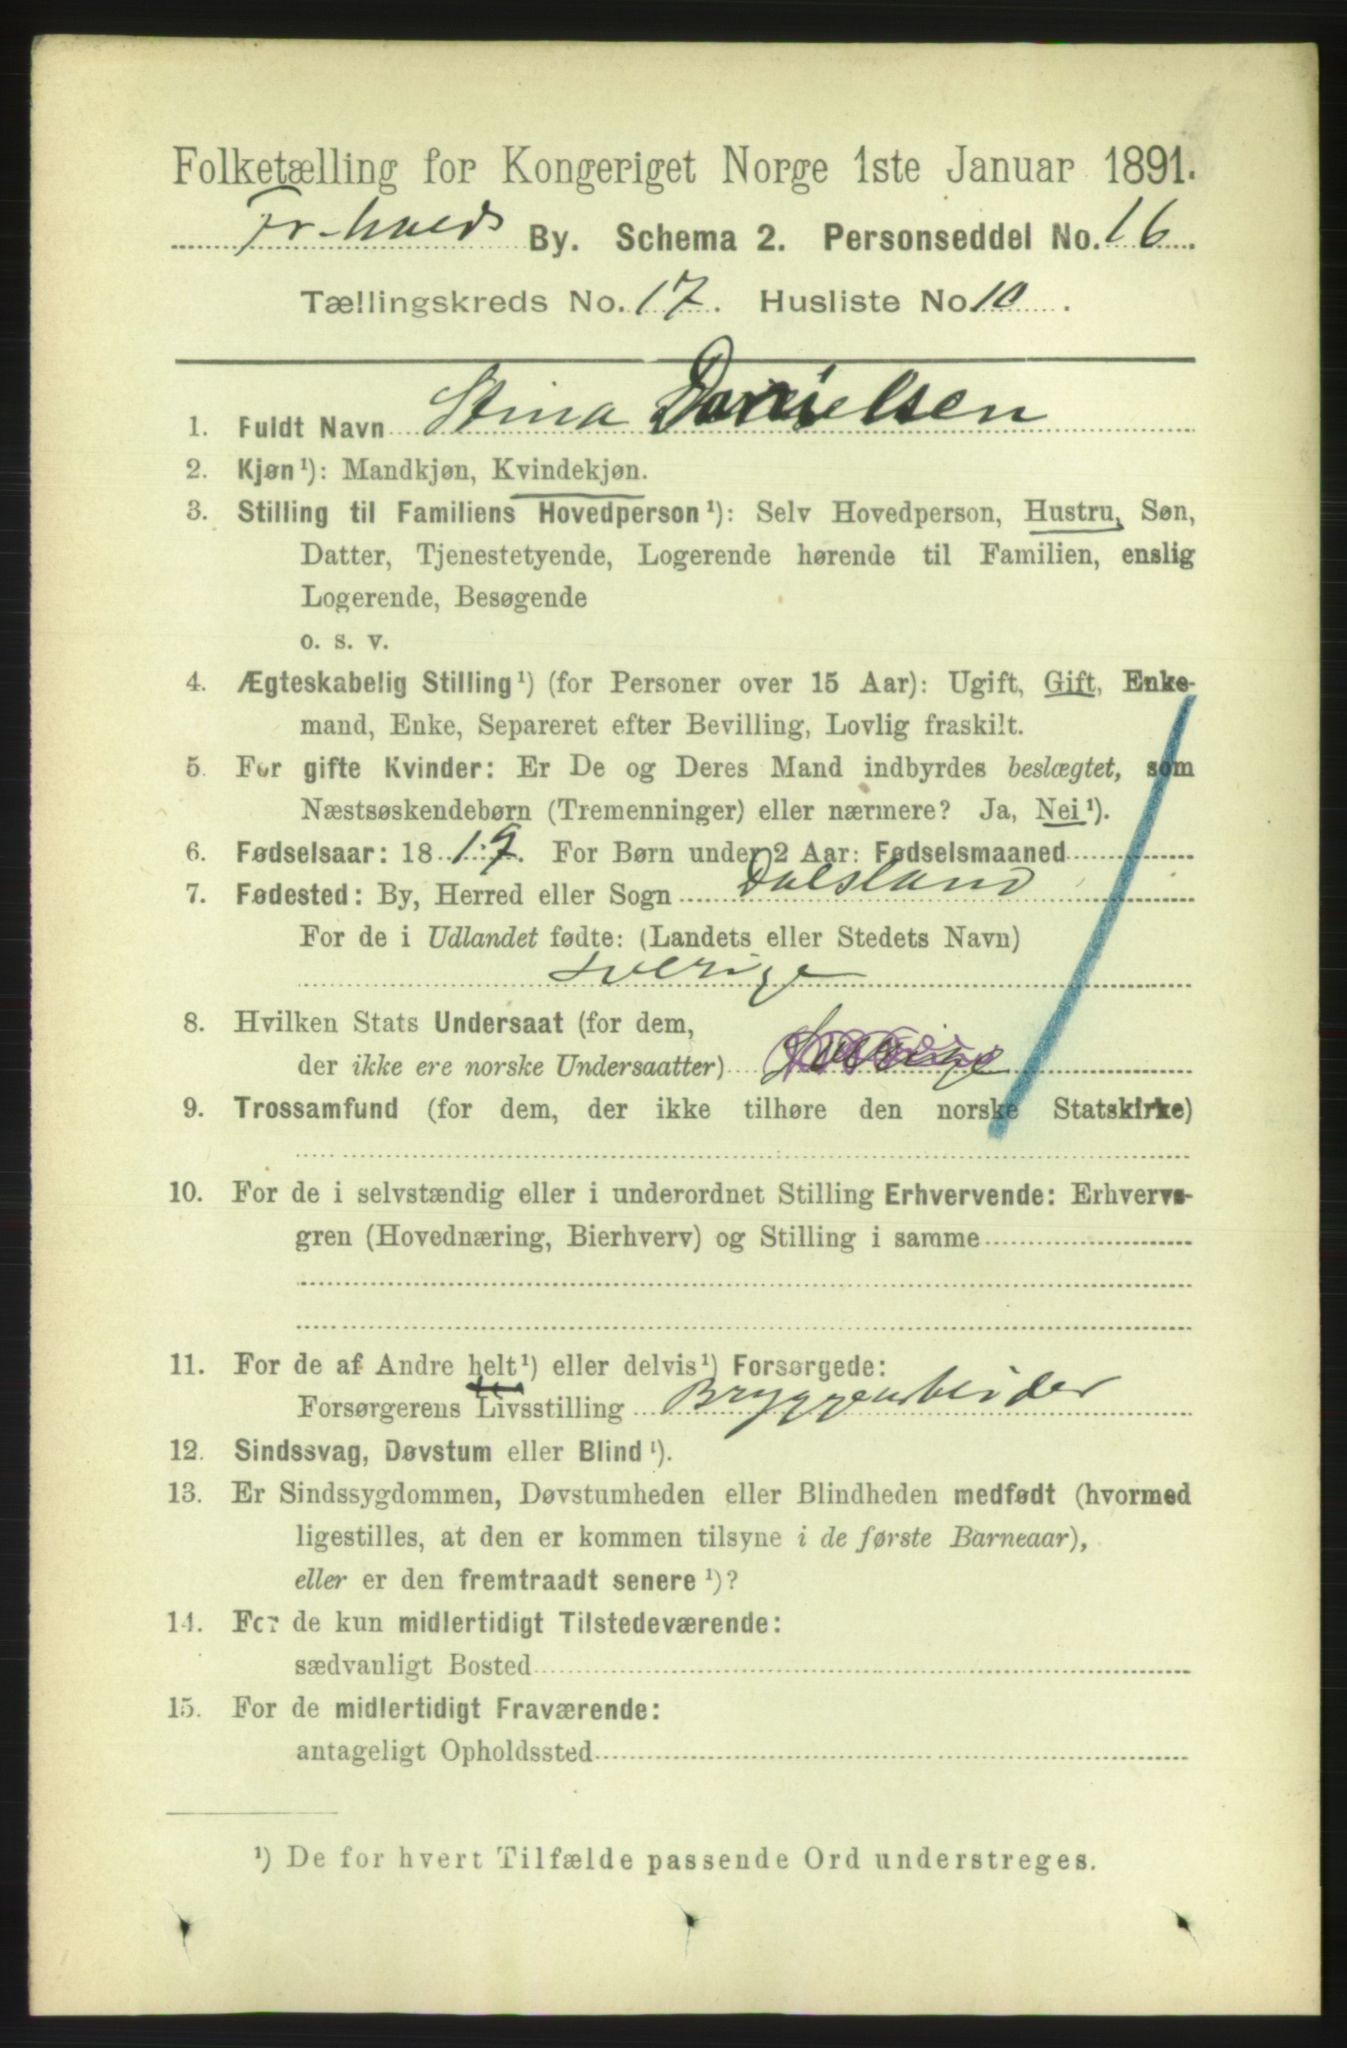 Folketælling for Kongeriget Norge 1ste Januar 1891.
Fr.halds By. Schema 2. Personseddel No. 16.
Tællingskreds No. 17. Husliste No 10.
1. Fuldt Navn Stina Danielsen
2. Kjøn¹): Mandkjøn, Kvindekjøn.
3. Stilling til Familiens Hovedperson¹): Selv Hovedperson, Hustru, Søn,
Datter, Tjenestetyende, Logerende hørende til Familien, enslig
Logerende, Besøgende
o. s. v.
4. Ægteskabelig Stilling¹) (for Personer over 15 Aar): Ugift, Gift, Enke-
mand, Enke, Separeret efter Bevilling, Lovlig fraskilt.
5. For gifte Kvinder: Er De og Deres Mand indbyrdes beslægtet, som
Næstsøskendebørn (Tremenninger) eller nærmere? Ja, Nei¹).
6. Fødselsaar: 18 19. For Børn under 2 Aar: Fødselsmaaned
7. Fødested: By, Herred eller Sogn Dalsland
For de i Udlandet fødte: (Landets eller Stedets Navn)
Sverige
8. Hvilken Stats Undersaat (for dem,
der ikke ere norske Undersaatter) Sverige
9. Trossamfund (for dem, der ikke tilhøre den norske Statskirke)
10. For de i selvstændig eller i underordnet Stilling Erhvervende: Erhvervs-
gren (Hovednæring, Bierhverv) og Stilling i samme
11. For de af Andre helt¹) eller delvis¹) Forsørgede:
Forsørgerens Livsstilling Bryggearbeider
12. Sindssvag, Døvstum eller Blind¹).
13. Er Sindssygdommen, Døvstumheden eller Blindheden medfødt (hvormed
ligestilles, at den er kommen tilsyne i de første Barneaar),
eller er den fremtraadt senere¹)?
14. For de kun midlertidigt Tilstedeværende:
sædvanligt Bosted
15. For de midlertidigt Fraværende:
antageligt Opholdssted
¹) De for hvert Tilfælde passende Ord understreges.